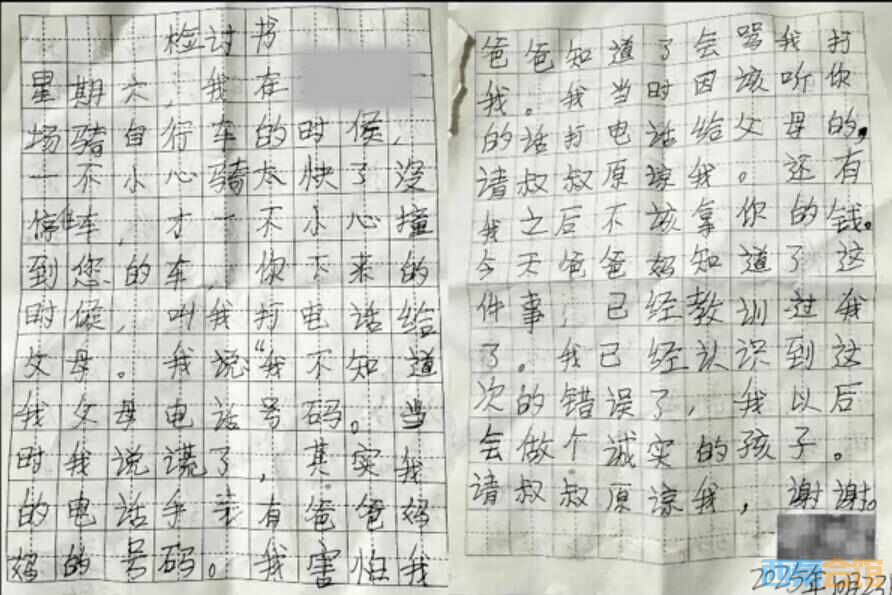 检讨书
星期六，我在
场骑自行车的时候，
一不小心骑太快了没
停住车，才一不小心撞
到您的车，你下来的
时候，叫我打电话给
父母。我说“我不知道
我父母电话号码。当
时我说谎了，其实我
的电话手表有爸爸妈
妈的号码。我害怕我
爸爸知道了会骂我打
我。我当时因该听你
的话打电话给父母的，
请叔叔原谅我。还有
我之后不该拿你的钱。
今天爸爸妈知道了这
件事，已经教训过我
了。我已经认识到这
次的错误了，我以后
会做个诚实的孩子。
请叔叔原谅我，谢谢
2025年10月23日